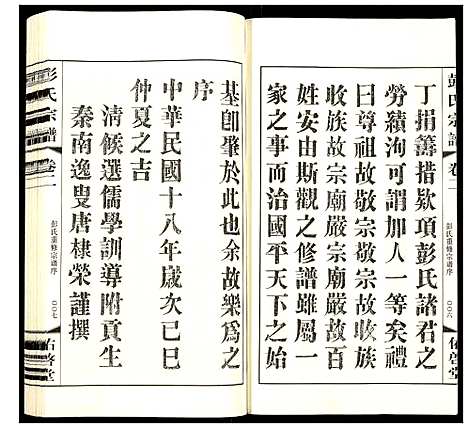 彭氏宗譜
卷二
彭氏重修宗譜序
〇〇六
佑啓堂
丁捐籌措欵項彭氏諸君之
勞績洵可謂加人一等矣禮
曰尊祖故敬宗敬宗故收族
收族故宗廟嚴宗廟嚴故百
姓安由斯觀之修譜雖屬一
家之事而治國平天下之始
基卽肇於此也余故樂為之
序
中華民國十八年歲次己巳
仲夏之吉
清候選儒學訓導附貢生
秦南逸叟唐棣榮謹撰
彭氏宗譜
卷二
彭氏重修宗譜序
〇〇七
佑啓堂